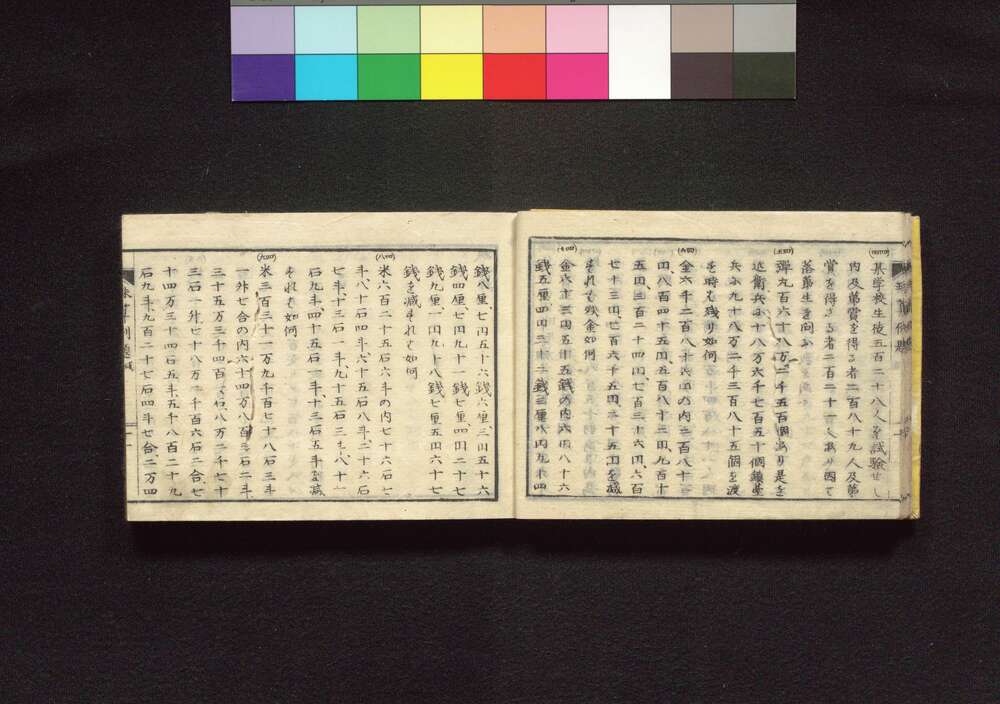 (四四)
某学校生徒五百二十八人を試験せし
内及第賞を得る者二百八十九人及第
賞を得ざる者二百二十一人あり因て
落第生を問ふ
(五四)
弾丸百六十八万二千五百個あり是を
近衛兵に十八万六千七百五十個鎮台
兵に九十八万二千三百八十五個を渡
す時も残り如何
(六四)
金六千二百八十 円の内二百八十
円八百四十五円、五百八十三円、九百十
五円三百二十四円七百三十六円、六百
七十三円、七百六千五円二十五円を減
ずれも残金如何
(七四)
金六十三円五十五銭の内六円八十六
銭五厘、四円三十二銭三厘八円九十四
銭八厘、七円五十六銭六厘、三円五十六
銭四厘、七円九十一銭七厘四円二十七
銭九厘一円九十八銭七厘五円六十七
銭を減ずれも如何
(八四)
米六百二十五石六斗の内七十六石七
斗、八十四石六斗、六十五石八斗、二十六石
七斗、十三石一斗、九十五石三斗、八十一
石九斗、四十五石一斗、十三石五斗を減
ずれも如何
(九四)
米三百三十一万九千百七十八石三斗
一升七合の内六十四万八百三石二斗
三十五万三千四百 石、八万二千七十
三石一升七十八万二千百六石二合、七
十四万三十四石五斗、五千八百二十九
石九斗、九百二十七石四斗七合、二万四